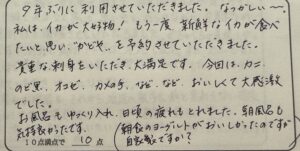 9年ぶりに利用させていただきました。なつかしい〜。
私は、イカが大好物！もう一度 新鮮なイカが食べ
たいと思い"かどや"を予約させていただきました。
貴重な刺身をいただき、大満足です。今回は、カニ、
のど黒、オコゼ、カメの手、など、など、おいしくて大感激
でした。
お風呂もゆっくり入れ、日頃の疲れもとれました。朝風呂も
気持良かったです。
（朝食のヨーグルトがおいしかったのですが
自家製ですか？
10点満点で 10 点